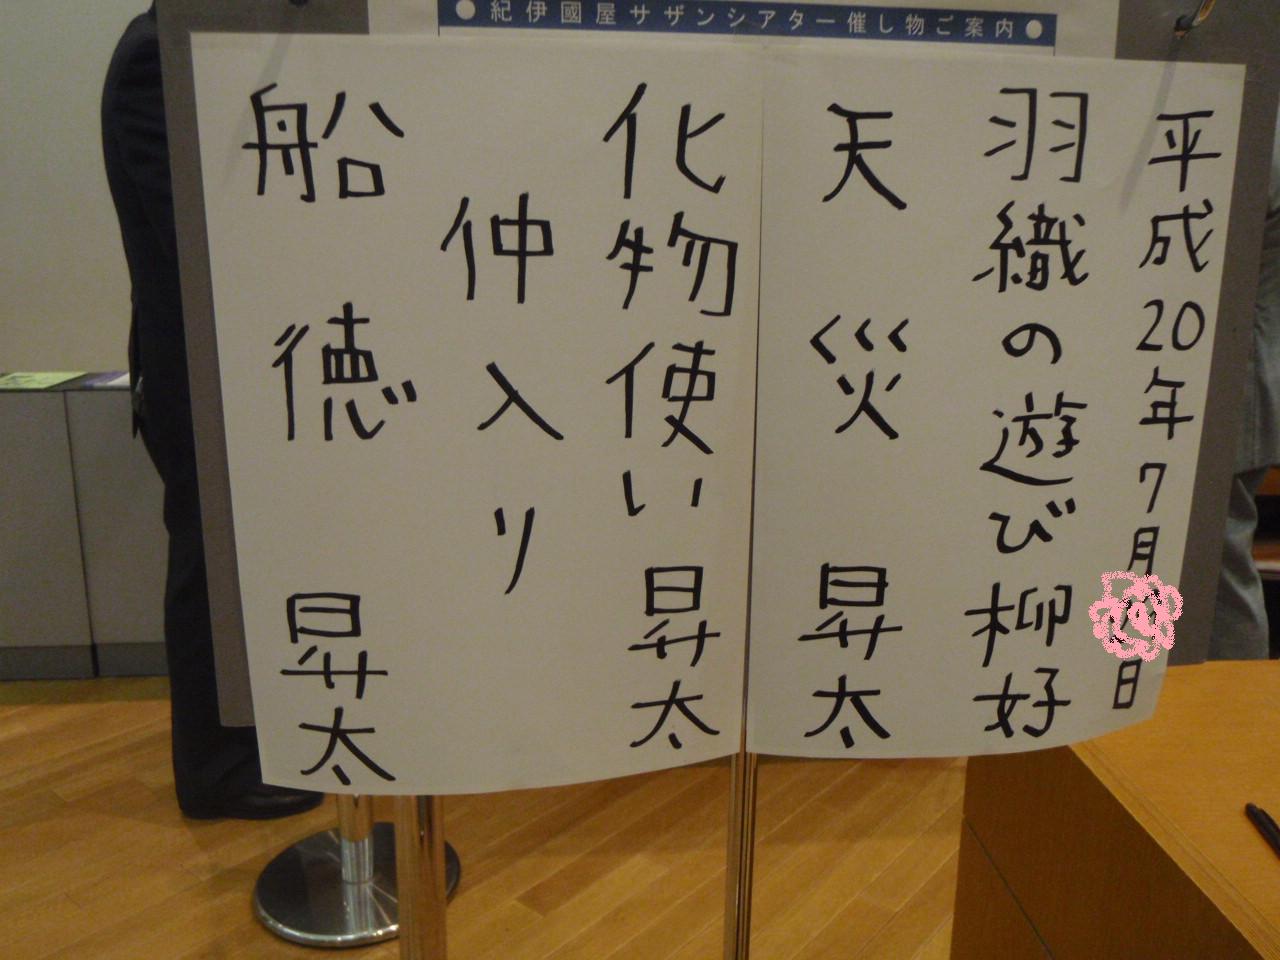 ●紀伊國屋サザンシアター催し物ご案内●
平成20年7月 日
羽織の遊び 柳好
天災 昇太
化物使い 昇太
仲入り
船徳 昇太